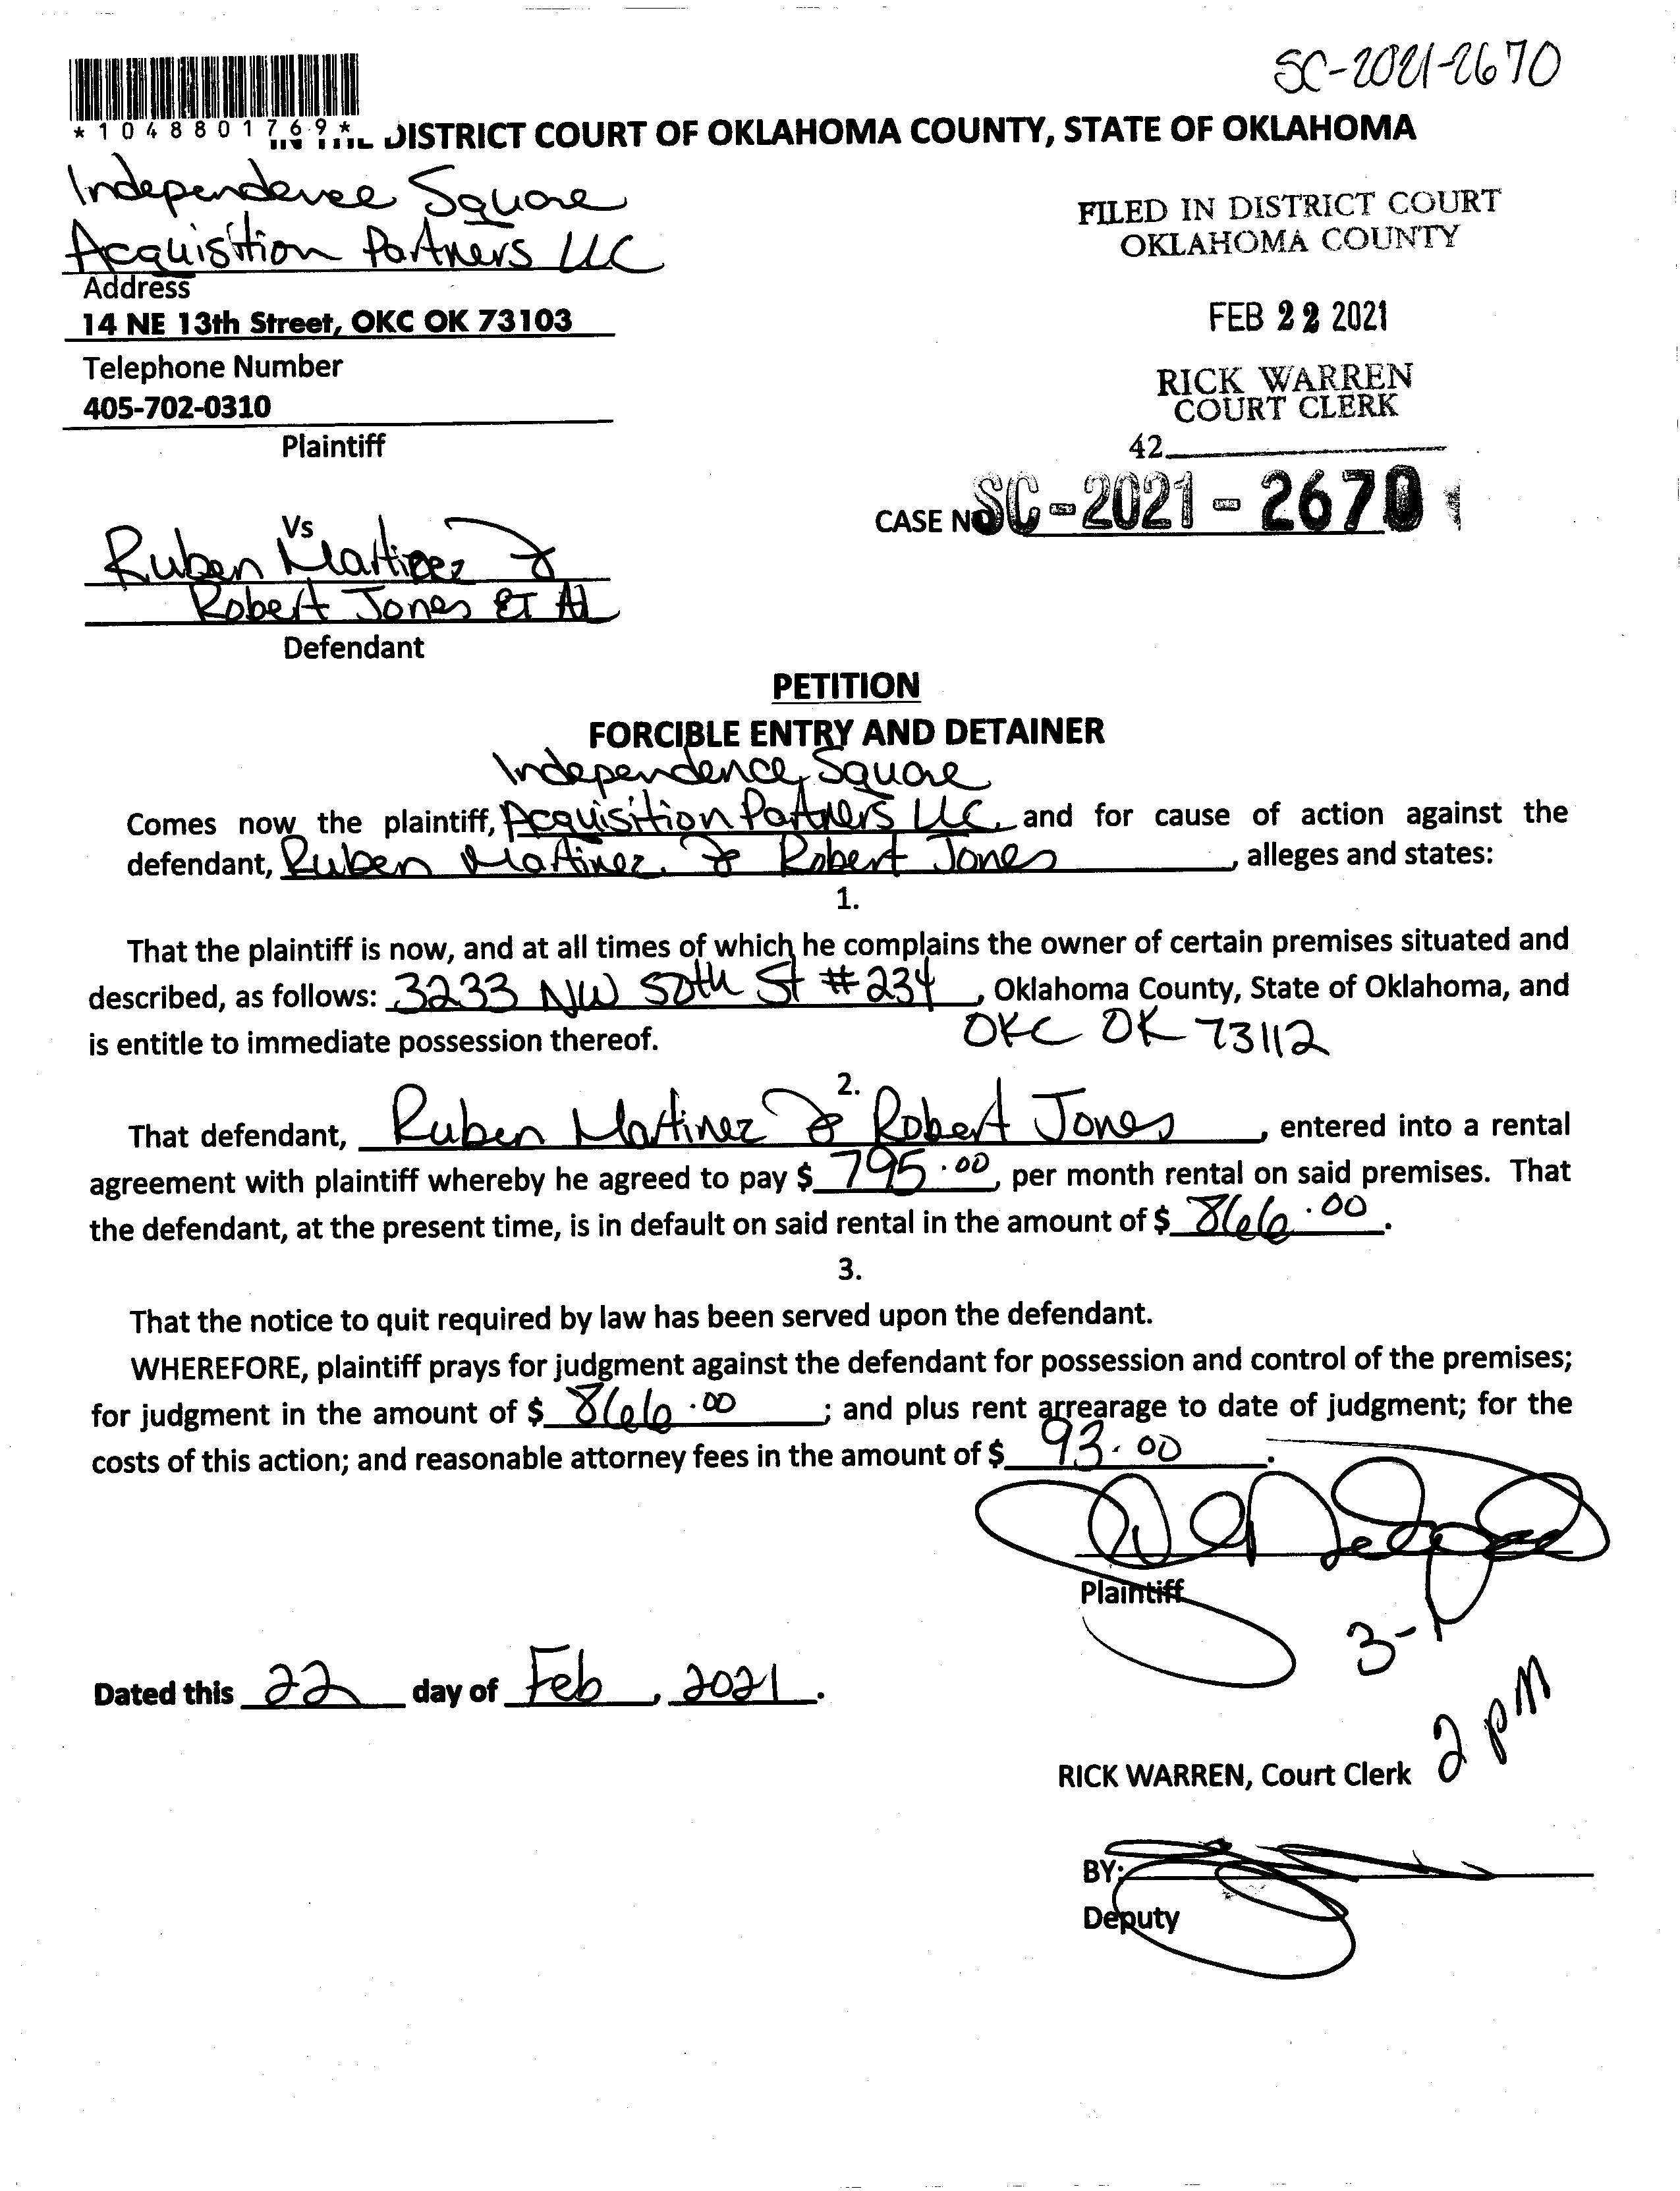 SC-2021-2670
*1048801769*
DISTRICT COURT OF OKLAHOMA COUNTY, STATE OF OKLAHOMA
Independence Square
Acquisition Partners LLC
Address
14 NE 13th Street, OKC OK 73103
Telephone Number
405-702-0310
Plaintiff
FILED IN DISTRICT COURT
OKLAHOMA COUNTY
FEB 22 2021
RICK WARREN
COURT CLERK
42
CASE NO SC-2021-2670
Vs
Ruben Martinez &
Robert Jones ET AL
Defendant
PETITION
FORCIBLE ENTRY AND DETAINER
Independence Square
Comes now the plaintiff, Acquisition Partners LLC, and for cause of action against the
defendant, Ruben Martinez & Robert Jones, alleges and states:
1.
That the plaintiff is now, and at all times of which he complains the owner of certain premises situated and
described, as follows: 3233 NW 50th St #234, Oklahoma County, State of Oklahoma, and
is entitle to immediate possession thereof. OKC OK 73112
2.
That defendant, Ruben Martinez & Robert Jones, entered into a rental
agreement with plaintiff whereby he agreed to pay $ 795.00, per month rental on said premises. That
the defendant, at the present time, is in default on said rental in the amount of $ 866.00.
3.
That the notice to quit required by law has been served upon the defendant.
WHEREFORE, plaintiff prays for judgment against the defendant for possession and control of the premises;
for judgment in the amount of $ 866.00; and plus rent arrearage to date of judgment; for the
costs of this action; and reasonable attorney fees in the amount of $ 93.00.
Plaintiff
Dated this 22 day of Feb, 2021.
2 pm
RICK WARREN, Court Clerk
BY:
Deputy